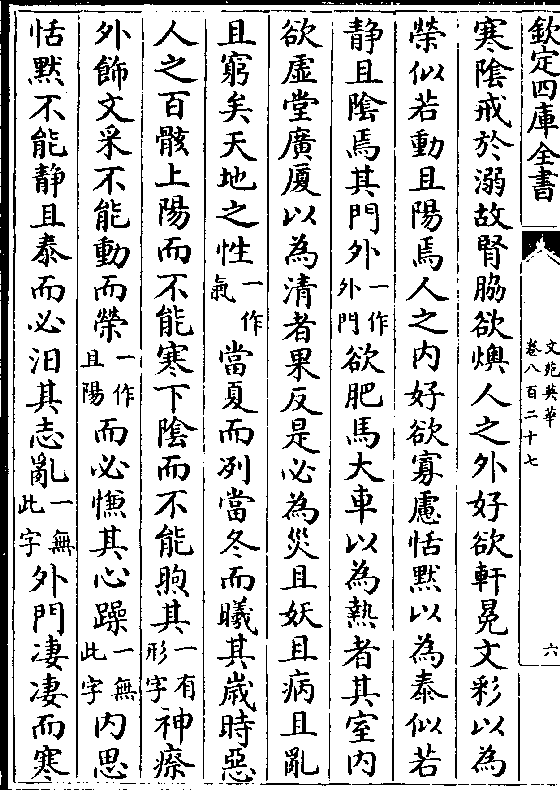 欽定四庫全書
文苑英華
卷八百二十七
六
寒陰戒於溺故腎脇欲燠人之外好欲軒冕文彩以為
榮似若動且陽焉人之内好欲寡慮恬默以為泰似若
静且陰焉其門外一作外門欲肥馬大車以為熱者其室内
欲虛堂廣厦以為清者果反是必為災且妖且病且亂
且窮矣天地之性一作氣當夏而冽當冬而曦其歲時惡
人之百骸上陽而不能寒下陰而不能煦其一有形字神瘵
外飾文采不能動而榮一作且陽而必憮其心躁一無此字内思
恬默不能静且泰而必汩其志亂一無此字外門凄凄而寒